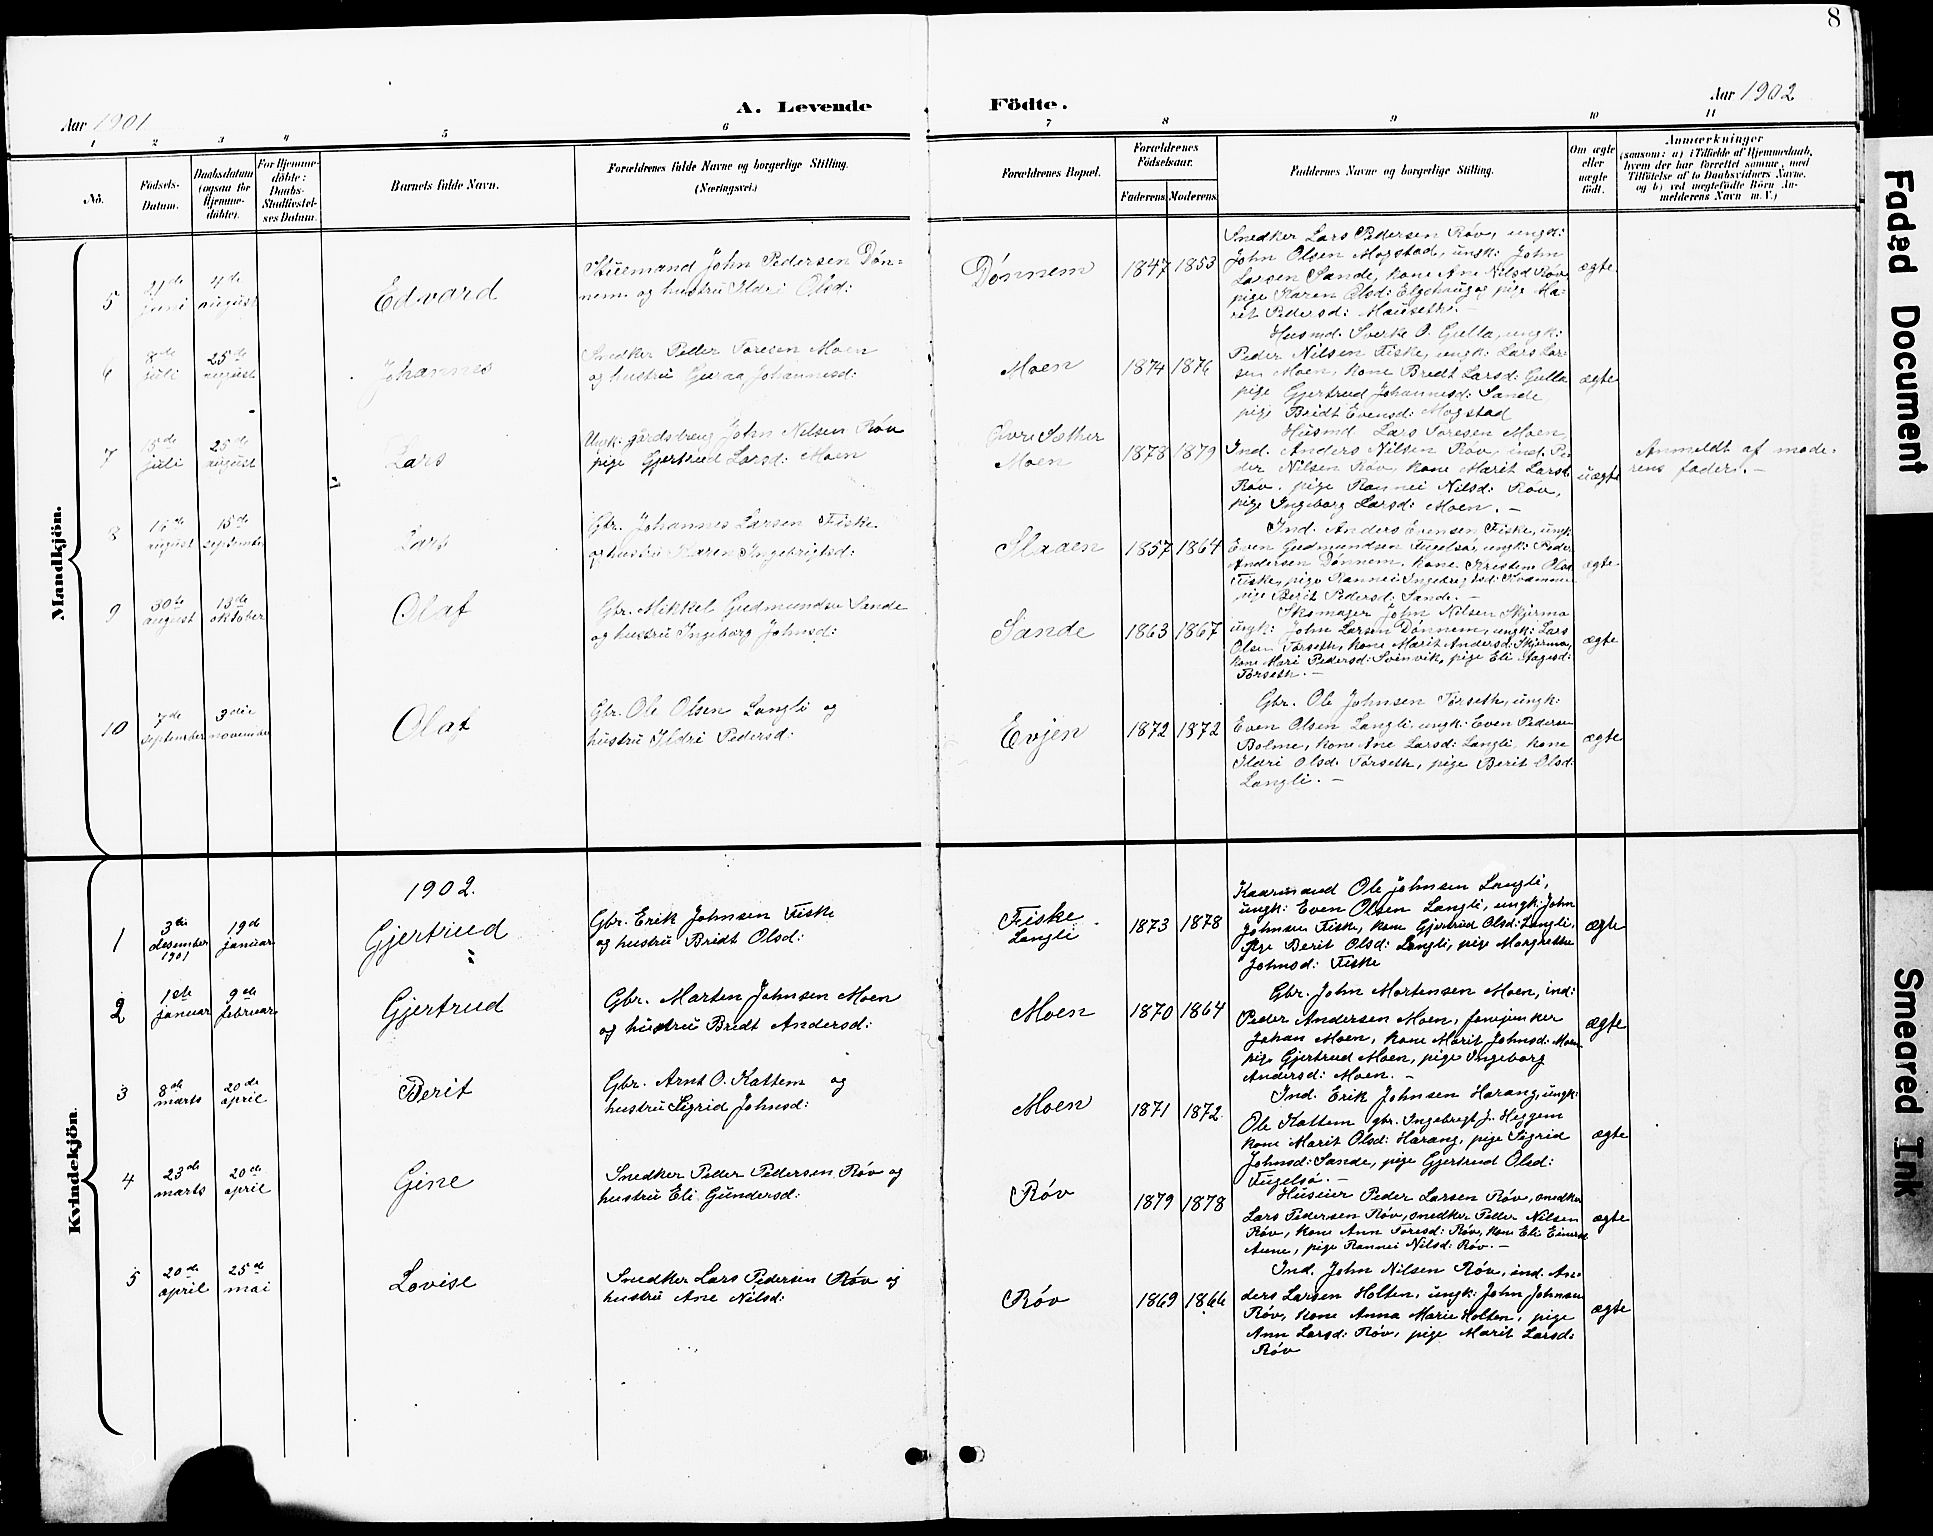 8
Aar 1901
A. Levende Födte.
Aar 1902
1 2 3 4 5 6 7 8 9 10 11
No.
Födsels-
Datum.
Daabsdatum
(ogsaa for
Hjemme-
döbte).
For Hjemme-
döbte:
Daabs-
Stadfæstel-
ses Datum.
Barnets fulde Navn.
Forældrenes fulde Navne og borgerlige Stilling.
(Næringsvei.)
Forældrenes Bopæl.
Forældrenes
Födselsaar.
Faderens. Moderens.
Faddernes Navne og borgerlige Stilling.
Om ægte
eller
uægte
födt.
Anmærkninger
(saasom: a) i Tilfælde af Hjemmedaab,
hvem der har forrettet samme, med
Tilföielse af to Daabsvidners Navne,
og b) ved uægtefödte Börn An-
melderens Navn m. V.)
Mandkjön.
5
juni
4de
august
Edvard
Stuemand John Pedersen Døn-
nem og hustru Ildri Olsd:
Dønnem
1847 1853
Snedker Lars Pedersen Røv, ungk:
John Olsen Mogstad, ungk: John
Larsen Sande, kone Ane Nilsd Røv
pige Karen Olsd: Elgshaug, pige Ma-
rit Pedersd: Mauseth. –
ægte
6
8de
juli
25de
august
Johannes
Snedker Peder Toresen Moen
og hustru Guraa Johannesd:
Moen
1874 1876
Husmd: Sverke O. Gulla, ungk:
Peder Nilsen Fiske, ungk: Lars Lar-
sen Moen, kone Bredt Larsd: Gulla
pige Gjertrud Johannesd: Sande
pige Bridt Evensd: Mogstad
ægte
7
15de
juli
25de
august
Lars
Ungk: gårdsdreng John Nilsen Røv
pige Gjertrud Larsd: Moen
Øvre Sæther
Moen
1878 1879
Husmd Lars Toresen Moen
Ind. Anders Nilsen Røv, ind. Pe-
der Nilsen Røv, kone Marit Larsd:
Røv. pige Rannei Nilsd: Røv,
pige Ingeborg Larsd: Moen. –
uægte
Anmeldt af mode-
rens fader. –
8
august
15de
september
Lars
Gbr. Johannes Larsen Fiske
og hustru Karen Ingebrigtsd:
Slaaen
1857 1864
Ind. Anders Evensen Fiske, ungk:
Even Gudmundsen Fugelsø, ungk: Peder
Andersen Dønnem, kone Kristine Olsd
Fiske, pige Rannei Ingebrigtsd:
pige Berit Pedersd: Sande. –
ægte
9
30te
august
13de
oktober
Olaf
Gbr. Mikkel Gudmundsen Sande
og hustru Ingeborg Johnsd:
Sande
1863 1867
Skomager John Nilsen Skjermo
ungk: John Larsen Dønnem, ungk: Lars
Olsen Törseth, kone Marit Andersd: Skjermo,
kone Mari Pedersd: Svinvik, pige Eli Aagesd:
Törseth. –
ægte
10
7de
september
3die
november
Olaf
Gbr. Ole Olsen Langli og
hustru Ildri Pedersd:
Evjen
1872 1872
Gbr. Ole Johnsen Törseth, ungk:
Even Olsen Langli, ungk: Even Pedersen
Bolme, kone Ane Larsd: Langli, kone
Ildri Olsd: Törseth, pige Berit Olsd:
Langli. –
ægte
Kvindekjön.
1902.
1
3die
desember
1901
19de
januar
Gjertrud
Gbr. Erik Johnsen Fiske
og hustru Bridt Olsd:
Fiske
Langli
1873 1878
Kaarmand Ole Johnsen Langli,
ungk: Even Olsen Langli, ungk: John
Johnsen Fiske, kone Gjertrud Olsd: Langli,
pige Berit Olsd: Langli, pige Margrethe
Johnsd: Fiske
ægte
2
1ste
januar
9de
februar
Gjertrud
Gbr. Morten Johnsen Moen
og hustru Bredt Andersd:
Moen
1870 1864
Gbr. John Mortensen Moen, ind:
Peder Andersen Moen, fanejunker
Johan Moen, kone Marit Johnsd: Moen
pige Gjertrud Moen, pige Ingeborg
Andersd: Moen. –
ægte
3
8de
marts
20de
april
Berit
Gbr. Arnt O. Kattem og
hustru Sigrid Johnsd:
Moen
1871 1872
Ind. Erik Johnsen Harang, ungk:
Ole Kattem gbr. Ingebregt J. Heggem
kone Marit Olsd: Harang, pige Sigrid
Johnsd: Sande, pige Gjertrud Olsd:
Fugelsø. –
ægte
4
23de
marts
20de
april
Gine
Snedker Peder Pedersen Røv og
hustru Eli Gundersd:
Røv
1879 1878
Huseier Peder Larsen Røv, snedker
Lars Pedersen Røv, snedker Peder Nilsen
Røv, kone Ann Toresd: Røv, kone Eli Einersd
Aune, pige Rannei Nilsd: Røv. –
ægte
5
20de
april
25de
mai
Lovise
Snedker Lars Pedersen Røv og
hustru Ane Nilsd:
Røv
1869 1866
Ind. John Nilsen Røv, ind. An-
ders Larsen Holten, ungk: John Johnsen
Røv, kone Anna Marie Holten, pige
Ann Larsd: Røv, pige Marit Larsd:
Røv
ægte
Faded Document
Smeared Ink